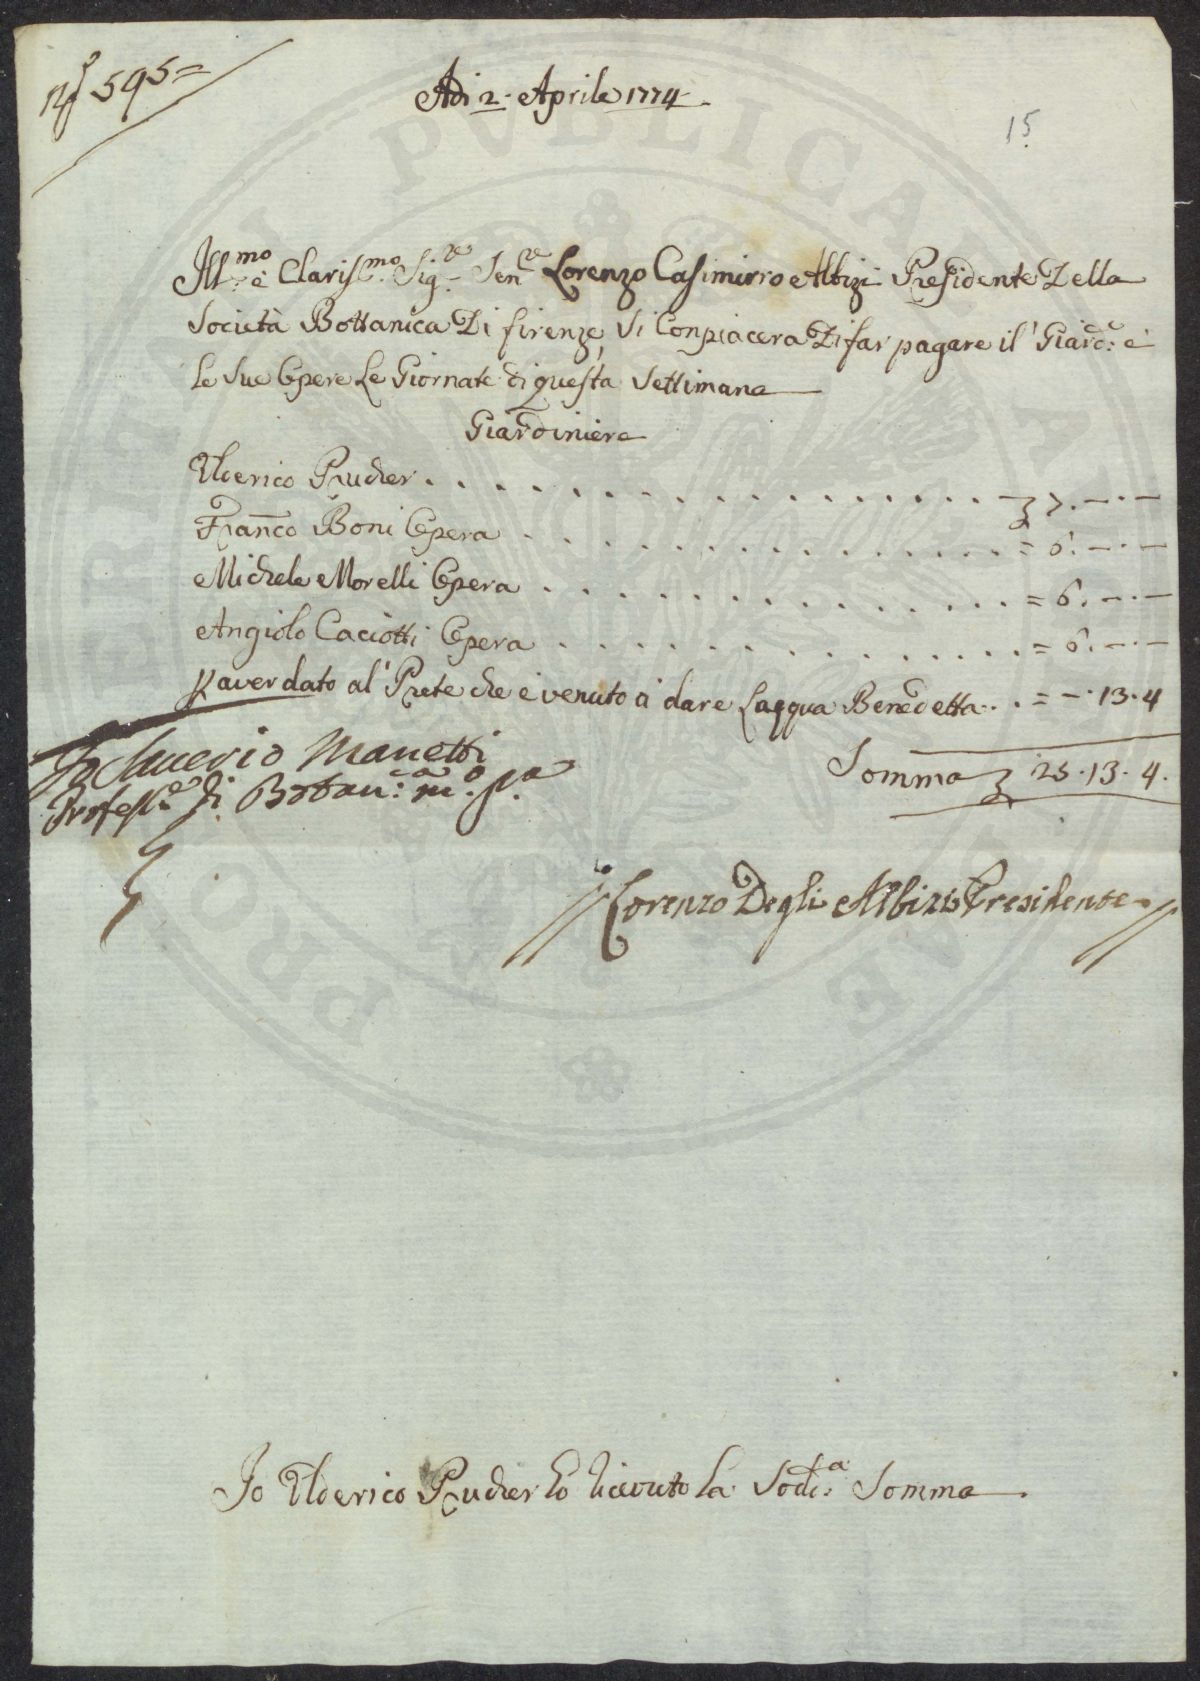 Nº 595=
Adi 2. Aprile 1774.
15
Ill.mo e Clariss.mo Sig.re Sen.re Lorenzo Casimirro Albizi Presidente Della
Società Bottanica Di firenze, Si Conpiacera Di far pagare il' Giard.e è
le Sue Opere Le Giornate di questa Settimana
Giardiniere
Ulderico Prucher . . . . . . . . 7.—.—
Franco Boni Opera . . . . . . . . = 6.—.—
Michele Morelli Opera . . . . . . . . = 6.—.—
Angiolo Caciotti Opera . . . . . . . . = 6.—.—
p aver dato al' Prete che è venuto à dare Laqqua Benedetta . . = —.13.4
Somma 25.13.4.
Io Saverio Manetti
Profess.e di Botan.ca m.o p.a
Lorenzo Degli Albizi Presidente
Io Ulderico Prucher ho riceuto la Sod.a Somma